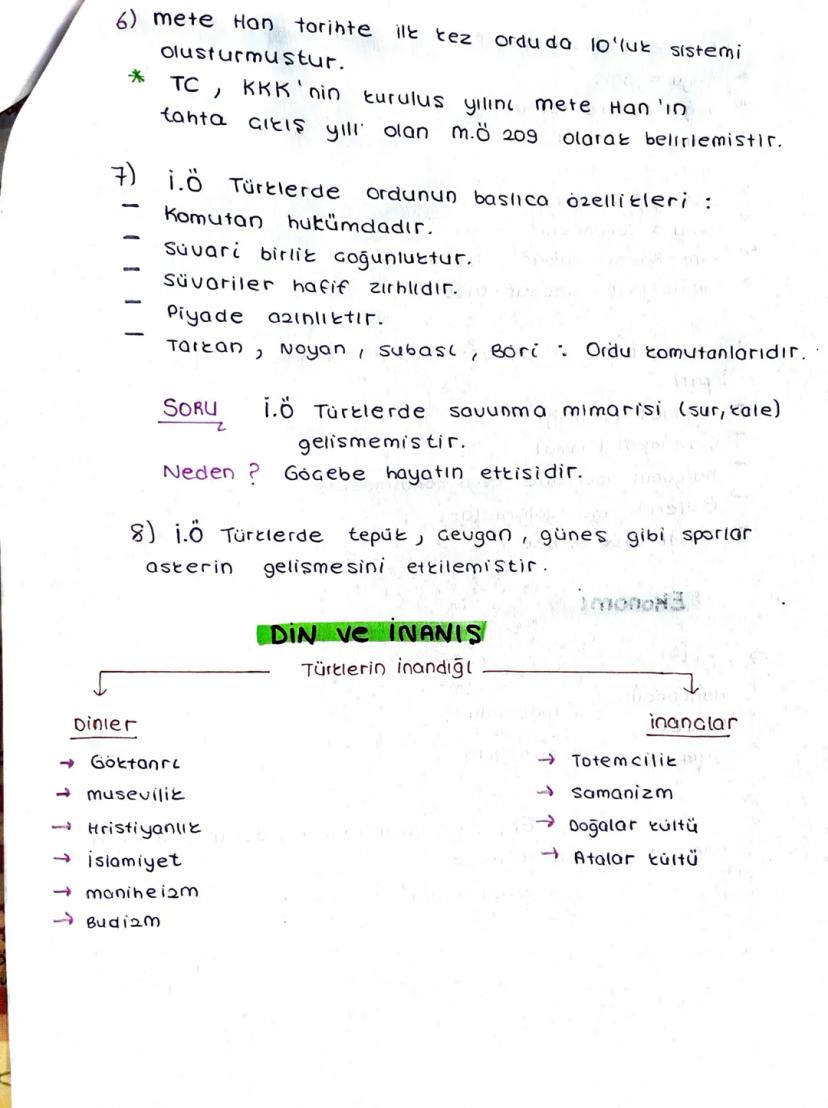 6) mete Han tarihte ilk kez orduda 10'luk sistemi
olusturmustur.
* TC, KKK'nin kurulus yılını mete Han'ın
tahta cıkış yılı olan m.Ö 209 olarak belirlemistir.
7) İ.Ö Türklerde ordunun baslıca özellikleri :
– Komutan hukümdadır.
– Süvari birlik coğunluktur.
– Süvariler hafif zırhlıdır.
– Piyade azınlıktır.
– Tarkan, Noyan, subası, Böri : Ordu komutanlarıdır.
SORU İ.Ö Türklerde savunma mimarisi (sur, kale)
gelismemistir.
Neden ? Göcebe hayatın etkisidir.
8) İ.Ö Türklerde tepük, cevgan, günes gibi sporlar
askerin gelismesini etkilemistir.
DİN ve İNANIS
Türklerin inandığı
Dinler
→ Göktanrı
→ musevilik
→ Hristiyanlık
→ İslamiyet
→ maniheizm
→ Budizm
inanclar
→ Totemcilik
→ Samanizm
→ Doğalar kültü
→ Atalar kültü